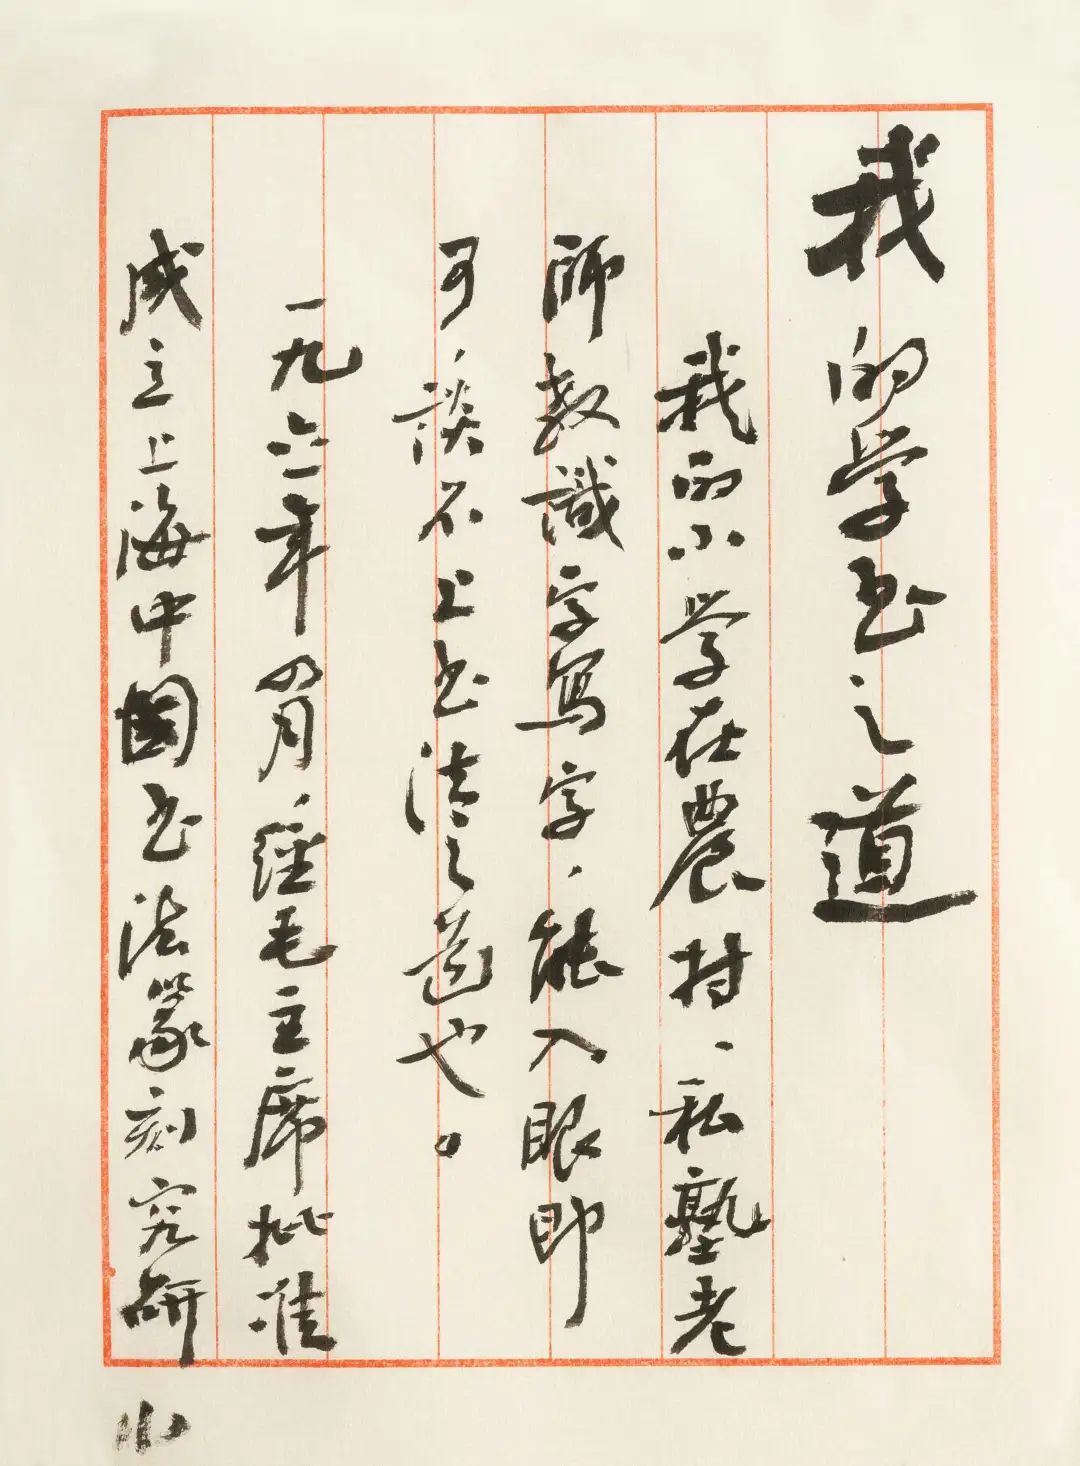 我的学书之道
我的小学在農村、私塾老
師教識字寫字，能入眼即
可，談不上书法之道也。
一九六一年四月，經毛主席批准
成立上海中國书法篆刻究研